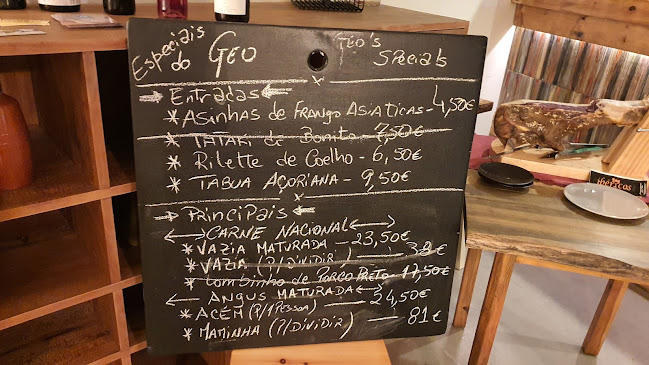 Especiais do Geo
Geo's Specials
Entradas
* Asinhas de Frango Asiaticas - 4,50€
* Tataki de Bonito - 7,50€
* Rilette de Coelho - 6,50€
* Tabua Açoriana - 9,50€
Principais
Carne Nacional
* Vazia Maturada - 23,50€
* Vazia (P/Dividir) - 38€
* Lombinho de Porco Preto - 17,50€
Angus Maturada
* Acém (P/1 Pessoa) - 24,50€
* Maminha (P/Dividir) - 81€